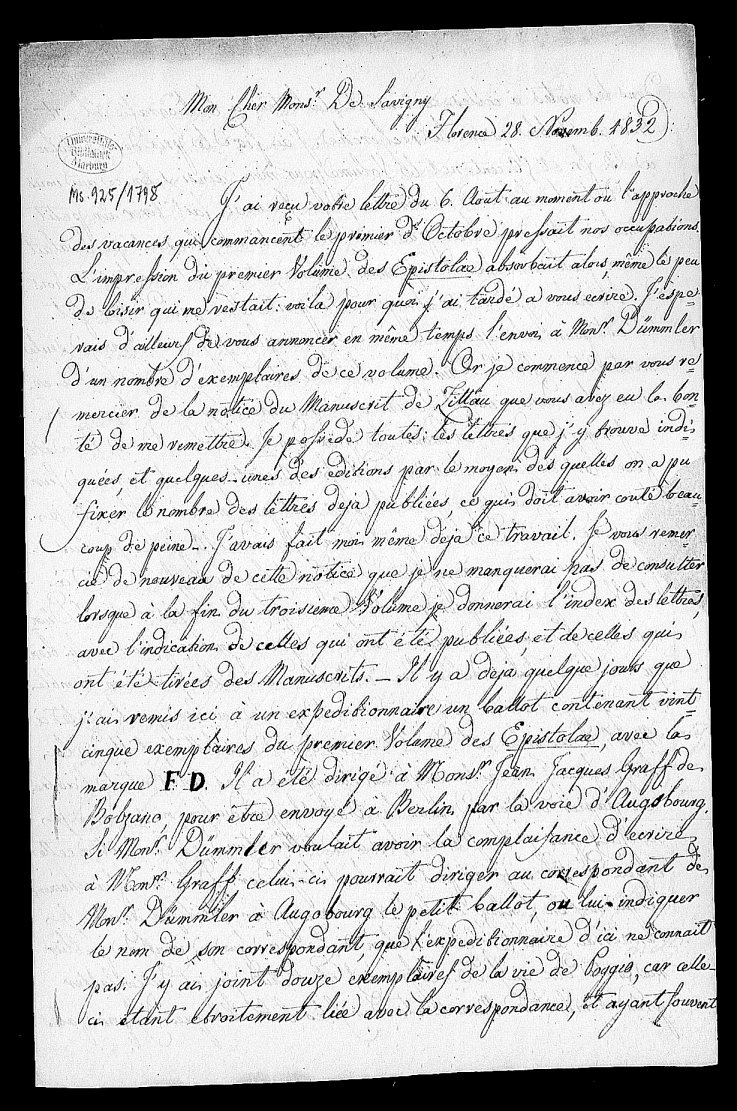 Mon Cher Mons.r De Savigny
Florence 28. Novemb. 1832
Universitäts
Bibliothek
Marburg
Ms. 925/1798
J'ai reçu votre lettre du 6. Aout au moment ou l'approche
des vacances qui commancent le premier d'Octobre pressait nos occupations.
L'impression du premier Volume des Epistolae absorbait alors même le peu
de loisir qui me restait: voila pour quoi j'ai tardé a vous ecrire. J'espe-
rais d'ailleurs de vous annoncer en même temps l'envoi à Mons.r Dümmler
d'un nombre d'exemplaires de ce volume. Or je commence par vous re-
mercier de la notice du Manuscrit de Zittau que vous avez eu la bon-
té de me remettre. Je possede toutes les lettres que j'y trouve indi-
quées, et quelques-unes des editions par le moyen des quelles on a pu
fixer le nombre des lettres deja publiées, ce qui doit avoir couté beau-
coup de peine. J'avais fait moi même deja ce travail. Je vous remer-
cie de nouveau de cette notice que je ne manquerai pas de consulter
lorsque à la fin du troisieme Volume je donnerai l'index des lettres,
avec l'indication de celles qui ont été publiées, et de celles qui
ont été tirées des Manuscrits. – Il y a deja quelque jours que
j'ai remis ici à un expeditionnaire un ballot contenant vint-
cinque exemplaires du premier Volume des Epistolae, avec la
marque F D. Il a été dirigé à Mons.r Jean Jacques Graff de
Bolzano pour être envoyé à Berlin par la voie d'Augsbourg.
Si Mons.r Dümmler voulait avoir la complaisance d'ecrire
à Mons.r Graff celui-ci pourrait diriger au correspondant de
Mons.r Dümmler à Augsbourg le petit ballot, ou lui indiquer
le nom de son correspondant, que l'expeditionnaire d'ici ne connait
pas. J'y ai joint douze exemplaires de la vie de Poggio, car celle-
ci etant etroitement liée avec la correspondance, et ayant souvent